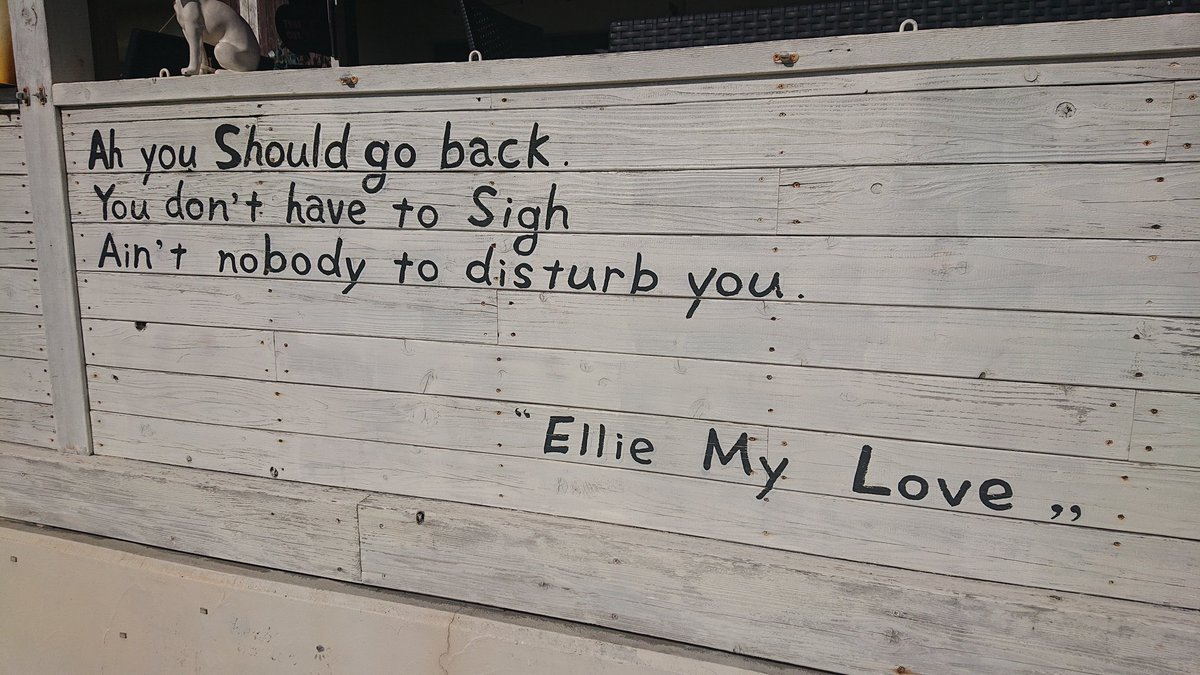 Ah you Should go back.
You don't have to Sigh
Ain't nobody to disturb you.
“Ellie My Love„